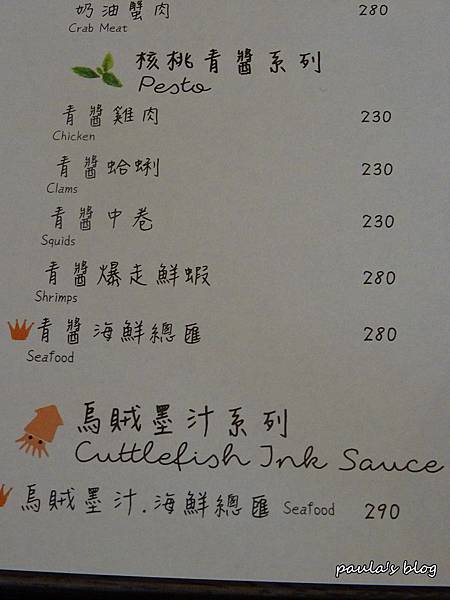 奶油蟹肉 280
Crab Meat
核桃青醬系列
Pesto
青醬雞肉 230
Chicken
青醬蛤蜊 230
Clams
青醬中卷 230
Squids
青醬爆走鮮蝦 280
Shrimps
青醬海鮮總匯 280
Seafood
烏賊墨汁系列
Cuttlefish Ink Sauce
烏賊墨汁.海鮮總匯 Seafood 290
paula's blog